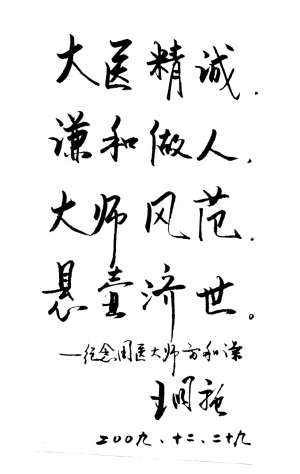 大医精诚.
谦和做人.
大师风范.
悬壶济世。
—纪念国医大师方和谦
王国
二00九、十二、二十九